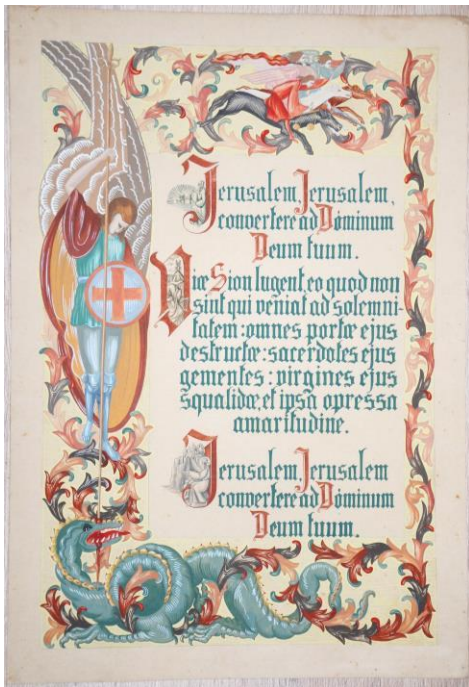 Jerusalem, Jerusalem,
convertere ad Dóminum
Deum tuum.
Viæ Sion lugent, eo quod non
sint qui veniat ad solemni-
tatem: omnes portæ ejus
destructæ: sacerdotes ejus
gementes: virgines ejus
squalidæ, et ipsa opressa
amaritudine.
Jerusalem, Jerusalem
convertere ad Dóminum
Deum tuum.